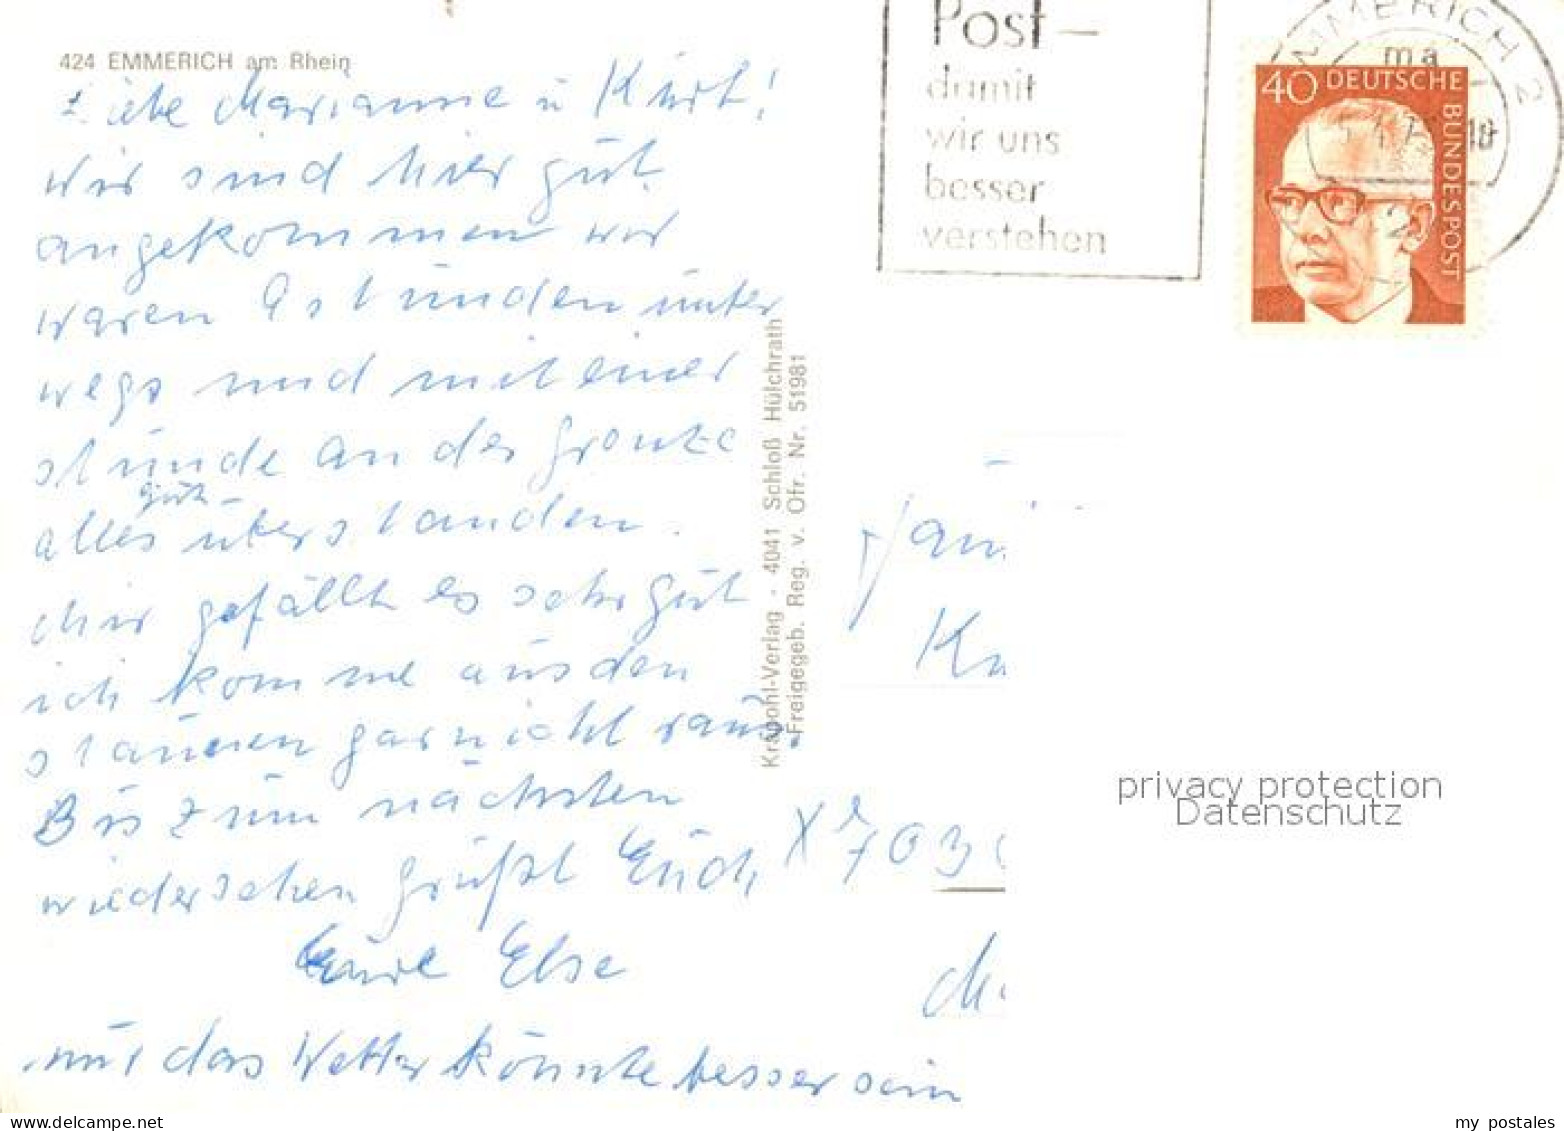 424 EMMERICH am Rhein
Liebe Marianne u Kurt!
wir sind hier gut
angekommen wir
waren 9 stunden unter
wegs und mit einer
stunde an der Grenze
gut
alles überstanden.
Mir gefällt es sehr gut
ich komme aus den
staunen gar nicht raus.
Bis zum nächsten
wiedersehen grüßt Euch
Eure Else
nur das Wetter könnte besser sein
Krapohl-Verlag - 4041 Schloß Hülchrath
Freigegeb. Reg. v. Ofr. Nr. 51981
Post-
damit
wir uns
besser
verstehen
EMMERICH 2
ma
40 DEUTSCHE
BUNDESPOST
X 703
privacy protection
Datenschutz
delcampe.net
my_postales